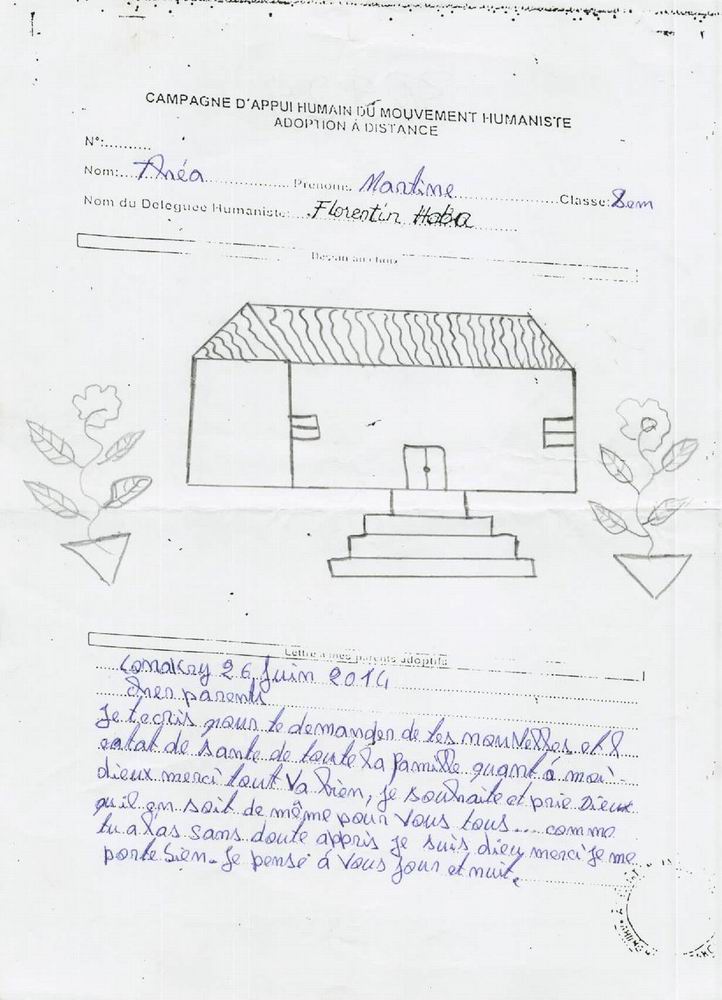 CAMPAGNE D'APPUI HUMAIN DU MOUVEMENT HUMANISTE
ADOPTION À DISTANCE
N°:..........
Nom: Théa Prenoms: Martine Classe: 8em
Nom du Deleguee Humaniste: Florentin Haba
Dessin au choix
Lettre à mes parents adoptifs
Conakry 26 Juin 2014
Cher parents
Je t'ecris pour te demander de tes nouvelles et l
eatat de sante de toute la famille quant à moi
dieux merci tout va bien, je souhaite et prie Dieux
qu il en soit de même pour vous tous... comme
tu a l'as sans doute appris je suis dieu merci je me
porte bien. Je pense à vous jour et nuit.